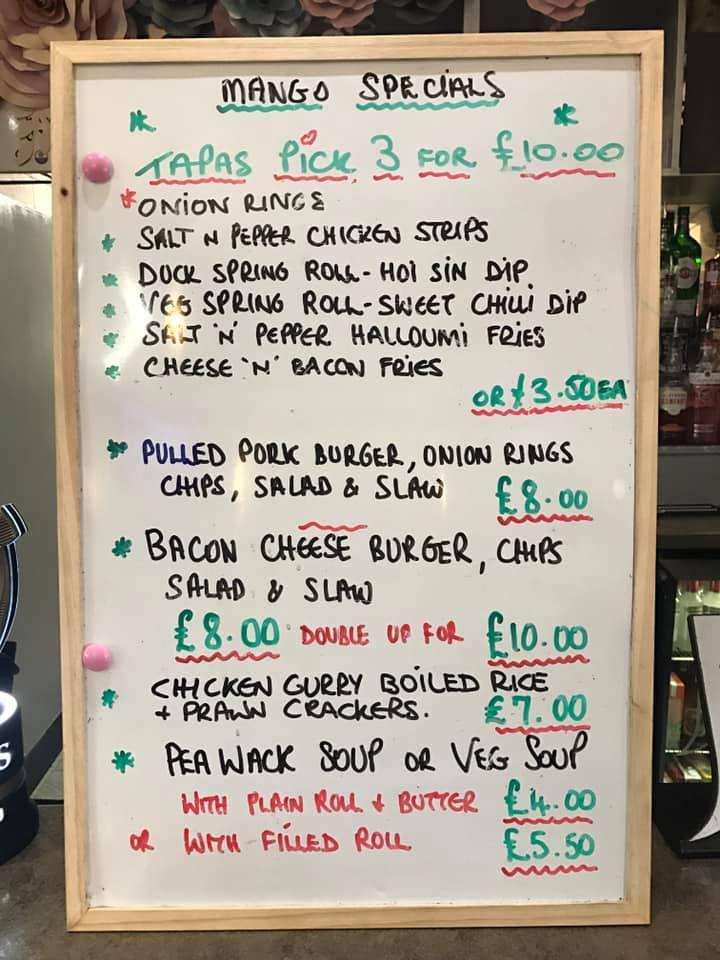 MANGO SPECIALS
TAPAS PICK 3 FOR £10.00
*ONION RINGS
* SALT N PEPPER CHICKEN STRIPS
* DUCK SPRING ROLL - HOI SIN DIP
* VEG SPRING ROLL - SWEET CHILLI DIP
* SALT 'N' PEPPER HALLOUMI FRIES
* CHEESE 'N' BACON FRIES
OR £3.50EA
* PULLED PORK BURGER, ONION RINGS
CHIPS, SALAD & SLAW £8.00
* BACON CHEESE BURGER, CHIPS
SALAD & SLAW
£8.00 DOUBLE UP FOR £10.00
* CHICKEN CURRY BOILED RICE
+ PRAWN CRACKERS. £7.00
* PEA WACK SOUP OR VEG SOUP
WITH PLAIN ROLL + BUTTER £4.00
OR WITH FILLED ROLL £5.50